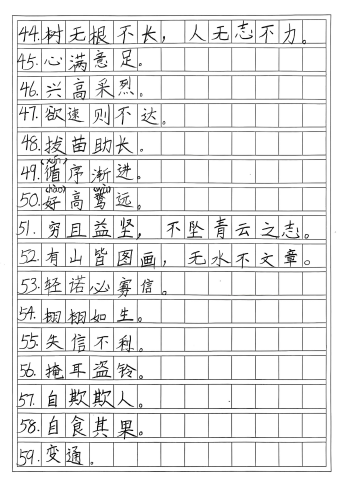 44.树无根不长，人无志不力。
45.心满意足。
46.兴高采烈。
47.欲速则不达。
48.拔苗助长。
(xún)
49.循序渐进。
(hào) (wù)
50.好高骛远。
51.穷且益坚，不坠青云之志。
52.有山皆图画，无水不文章。
53.轻诺必寡信。
54.栩栩如生。
55.失信不利。
56.掩耳盗铃。
57.自欺欺人。
58.自食其果。
59.变通。